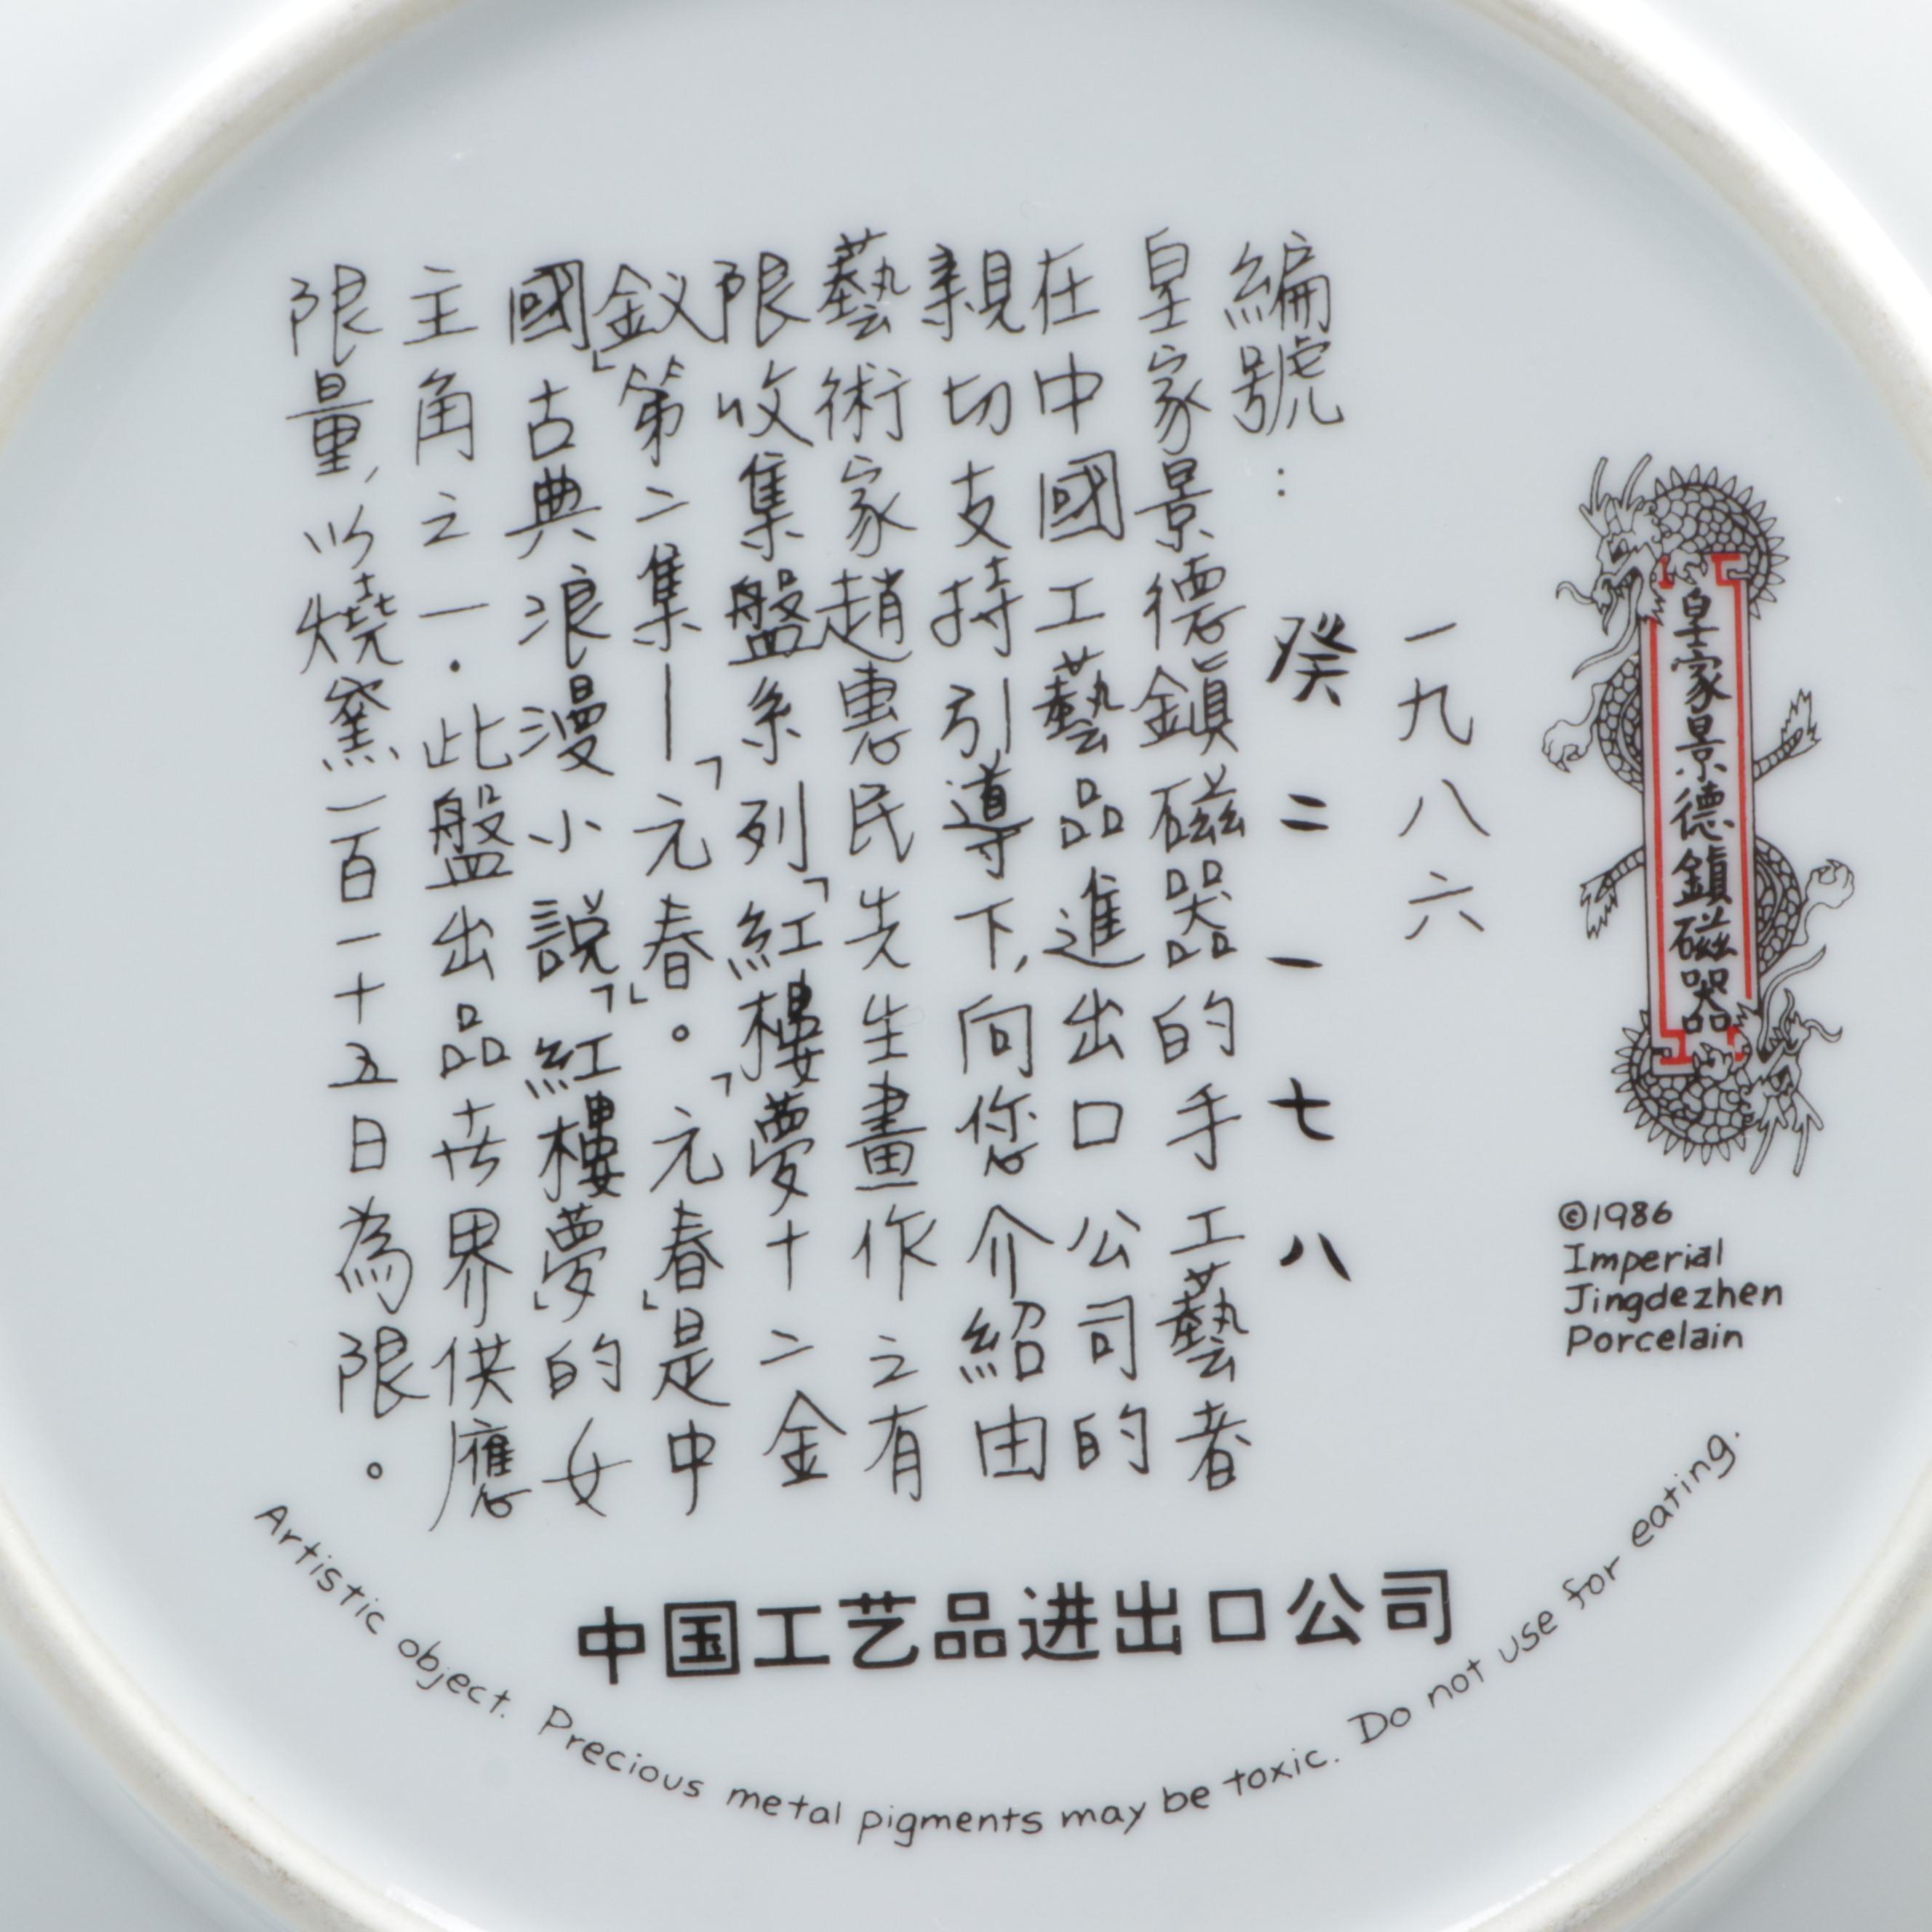 皇家景德鎮磁器
©1986
Imperial
Jingdezhen
Porcelain
一九八六
編號：癸二一七八
皇家景德鎮磁器的手工藝者
在中國工藝品進出口公司的
親切支持引導下，向您介紹由
藝術家趙惠民先生畫作之有
限收集盤系列「紅樓夢十二金
釵」第二集—「元春」。「元春」是中
國古典浪漫小說「紅樓夢」的女
主角之一．此盤出品世界供應
限量，以燒窯一百一十五日為限。
中国工艺品进出口公司
Artistic object. Precious metal pigments may be toxic. Do not use for eating.